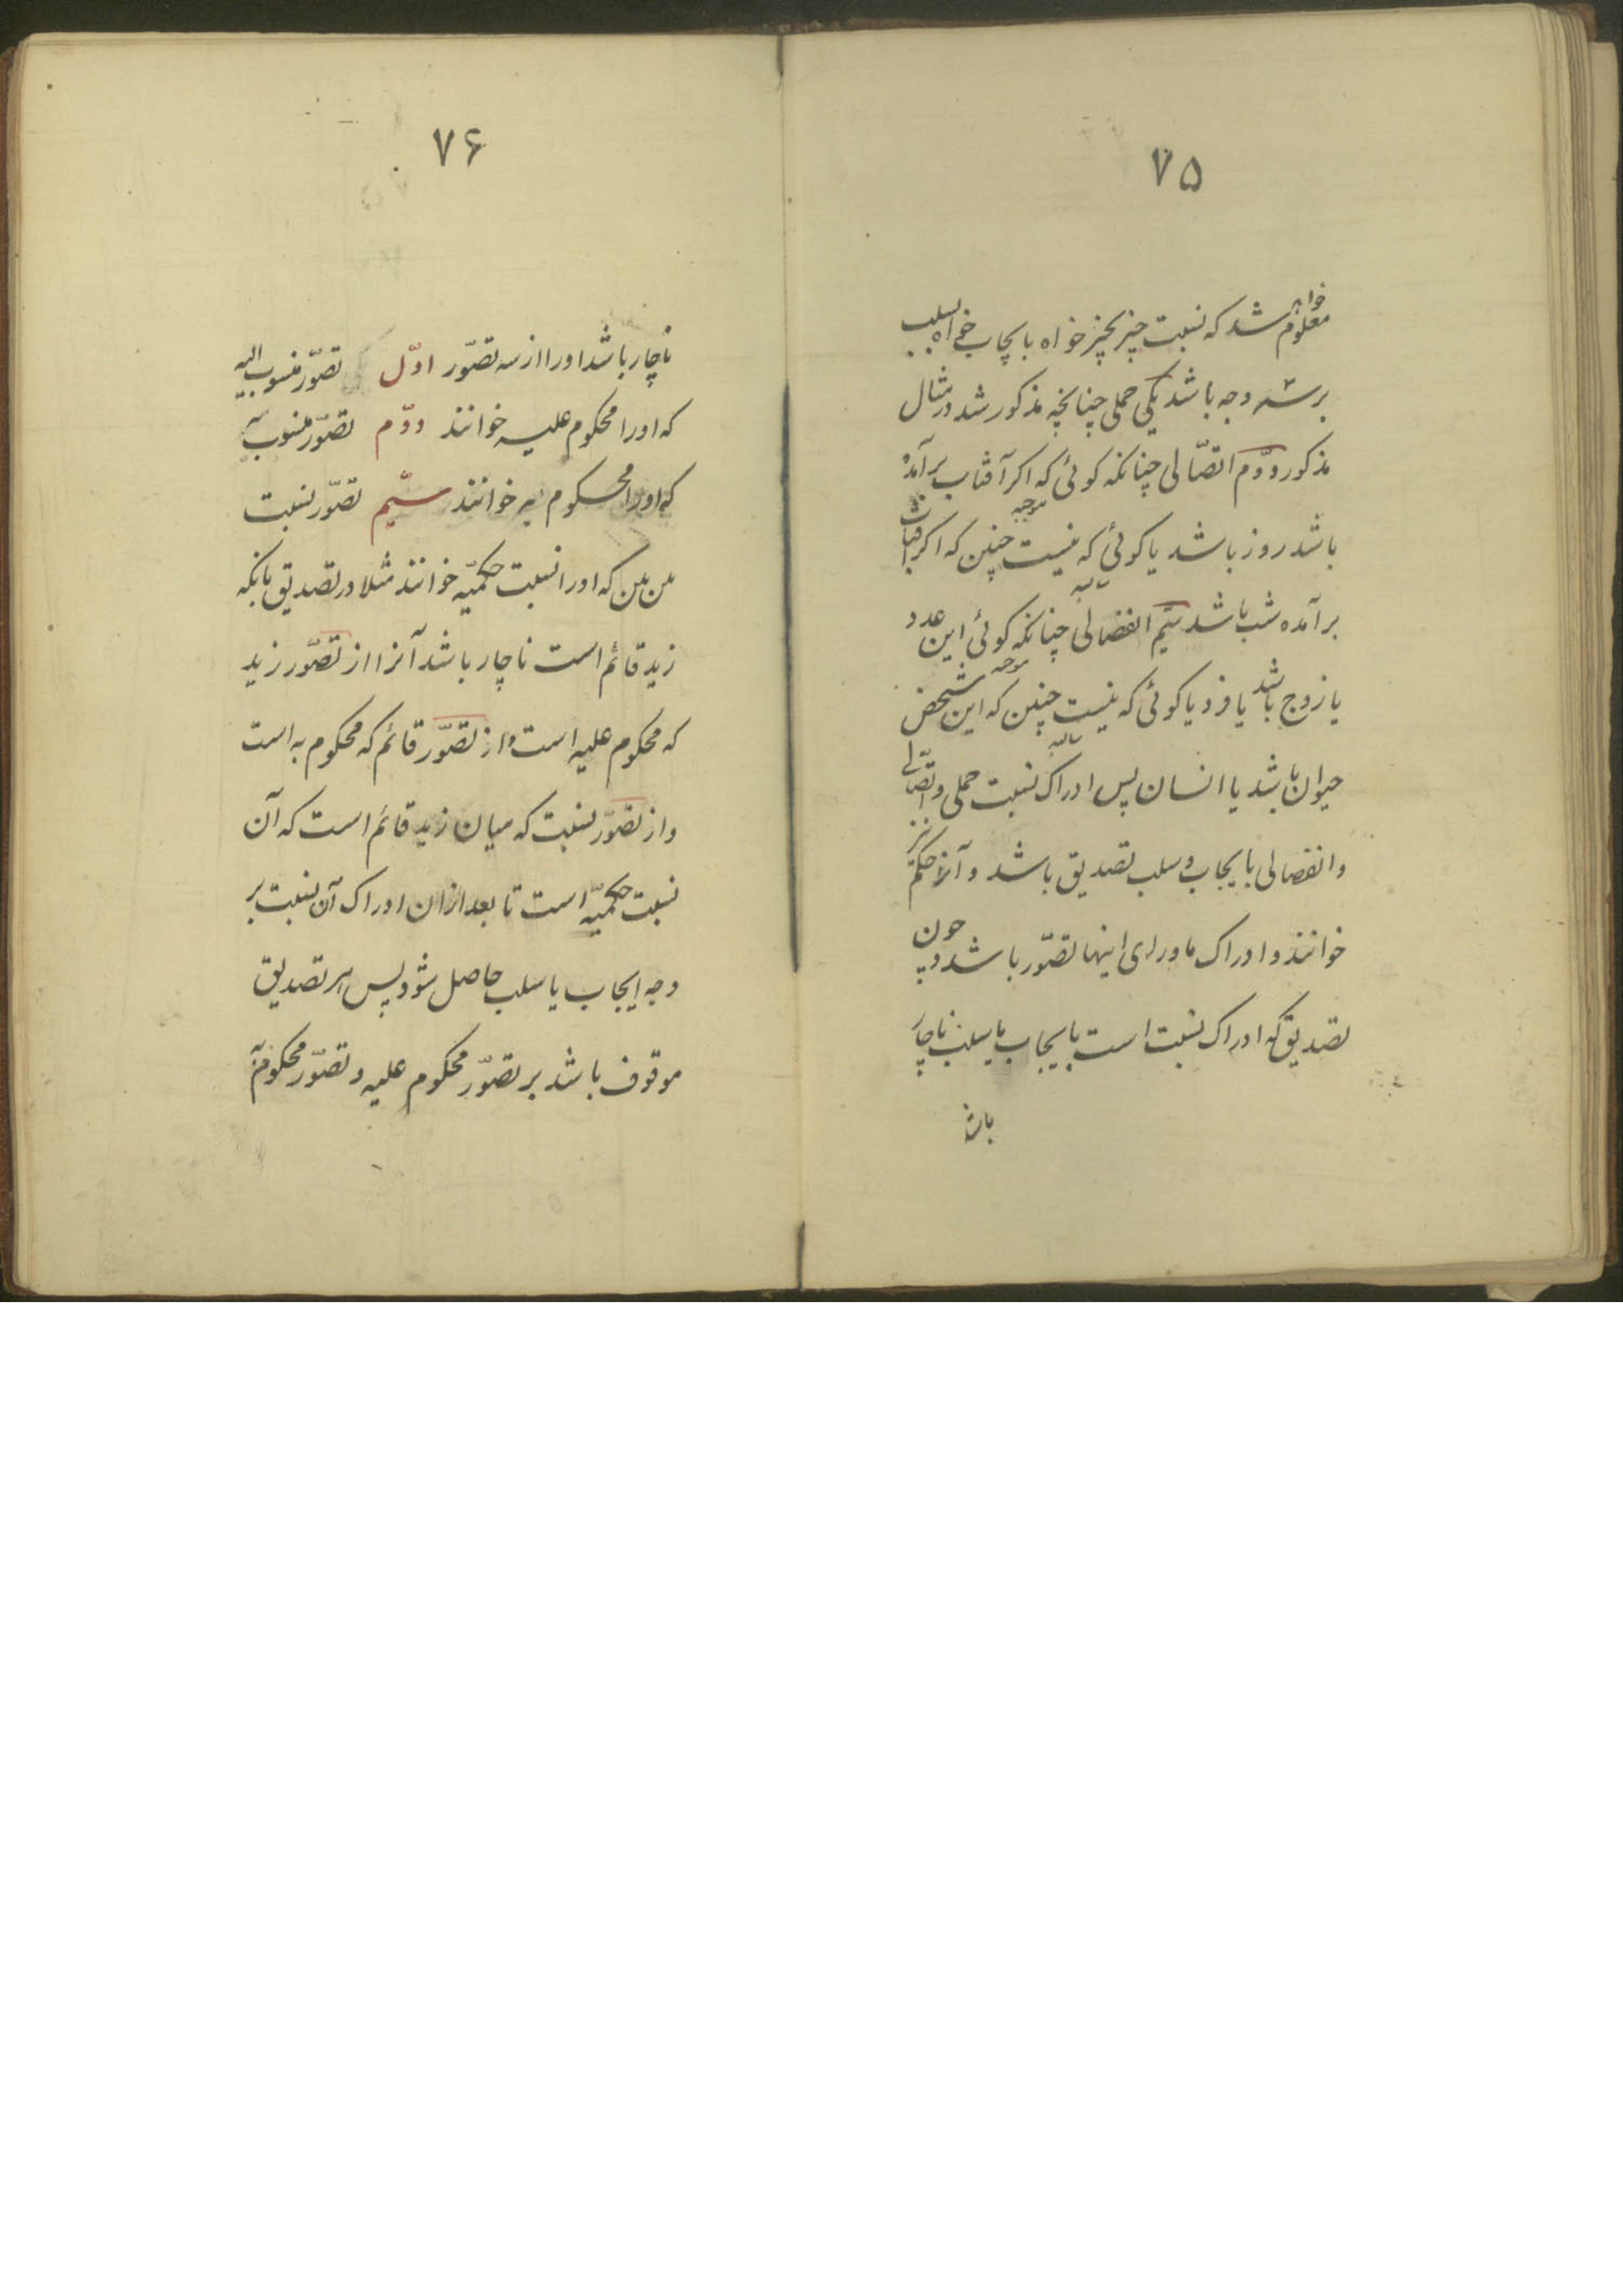 ۷۵
معلوم خواهد شد که نسبت چیز بچیز خواه بایجاب خواه بسلب
بر سه وجه باشد یکی حملی چنانچه مذکور شد در مثال
مذکور و دوّم اتصّالی چنانکه کوئی که اکر آفتاب برآمده
باشد روز باشد یا کوئی که نیست چنین که اکر آفتاب
موجبه
سالبه
برآمده باشد شب باشد سیّم انفصالی چنانکه کوئی این عدد
یا زوج باشد یا فرد یا کوئی که نیست چنین که این شخص
موجبه
سالبه
حیوان باشد یا انسان پس ادراک نسبت حملی و اتصّالی
و انفصالی بایجاب و سلب تصدیق باشد و آنرا حکم نیز
خوانند و ادراک ماورای اینها تصّور باشد و چون
تصدیق که ادراک نسبت است بایجاب یا بسلب ناچار
باشد
۷۶
ناچار باشد او را از سه تصوّر اوّل تصوّر منسوب الیه
که او را محکوم علیه خوانند دوّم تصوّر منسوب به
که او را محکوم به خوانند سیّم تصوّر نسبت
بین بین که او را نسبت حکمیّه خوانند مثلا در تصدیق بانکه
زید قائم است ناچار باشد آنرا از تصوّر زید
که محکوم علیه است و از تصوّر قائم که محکوم به است
و از تصوّر نسبت که میان زید قائم است که آن
نسبت حکمیّه است تا بعد از ان ادراک آن نسبت بر
وجه ایجاب یا سلب حاصل شود پس هر تصدیق
موقوف باشد بر تصوّر محکوم علیه و تصوّر محکوم به